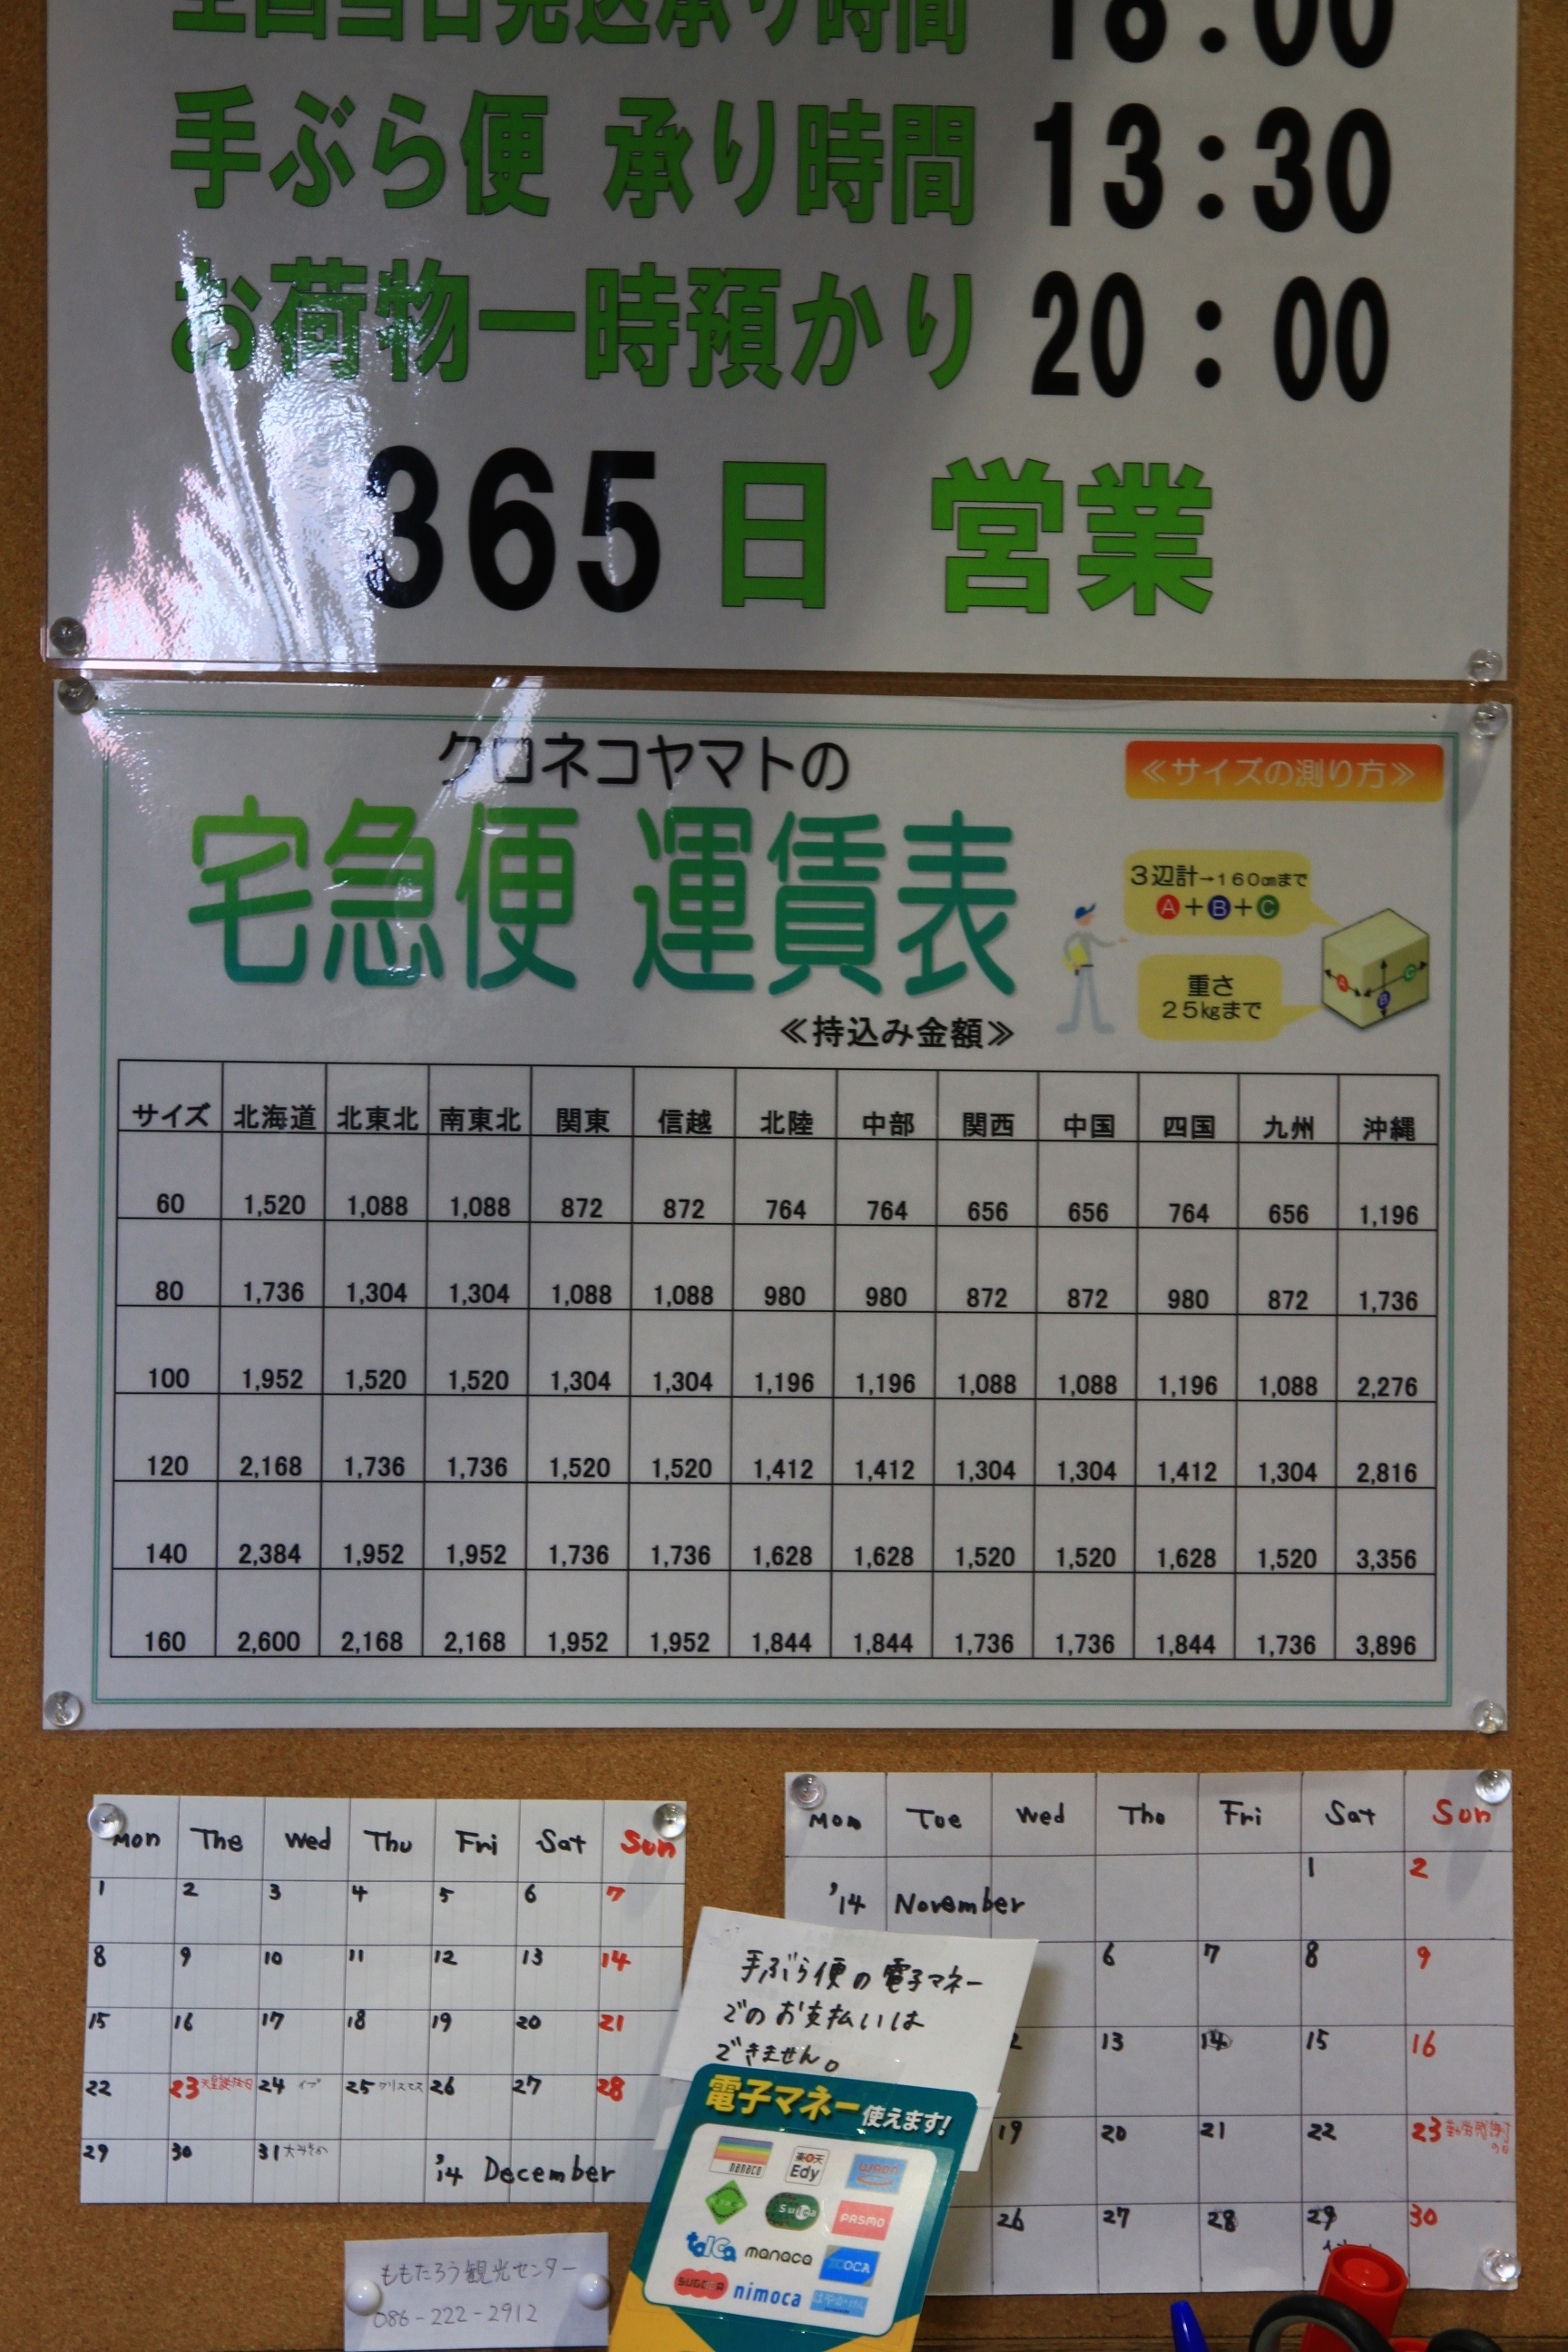 全国当日発送承り時間 18:00
手ぶら便 承り時間 13:30
お荷物一時預かり 20:00
365日 営業
クロネコヤマトの
宅急便 運賃表
≪持込み金額≫
≪サイズの測り方≫
3辺計→160㎝まで
A+B+C
重さ
25㎏まで
A B C
サイズ 北海道 北東北 南東北 関東 信越 北陸 中部 関西 中国 四国 九州 沖縄
60 1,520 1,088 1,088 872 872 764 764 656 656 764 656 1,196
80 1,736 1,304 1,304 1,088 1,088 980 980 872 872 980 872 1,736
100 1,952 1,520 1,520 1,304 1,304 1,196 1,196 1,088 1,088 1,196 1,088 2,276
120 2,168 1,736 1,736 1,520 1,520 1,412 1,412 1,304 1,304 1,412 1,304 2,816
140 2,384 1,952 1,952 1,736 1,736 1,628 1,628 1,520 1,520 1,628 1,520 3,356
160 2,600 2,168 2,168 1,952 1,952 1,844 1,844 1,736 1,736 1,844 1,736 3,896
Mon The Wed Thu Fri Sat Sun
1 2 3 4 5 6 7
8 9 10 11 12 13 14
15 16 17 18 19 20 21
22 23 天皇誕生日 24 イブ 25 クリスマス 26 27 28
29 30 31 大みそか '14 December
Mon Tue Wed Thu Fri Sat Sun
'14 November 1 2
6 7 8 9
2 13 14 15 16
19 20 21 22 23
26 27 28 29 30
手ぶら便の電子マネー
でのお支払いは
できません。
電子マネー使えます!
nanaco 楽天Edy WAON
Suica PASMO
toica manaca ICOCA
SUGOCA nimoca はやかけん
ももたろう観光センター
086-222-2912